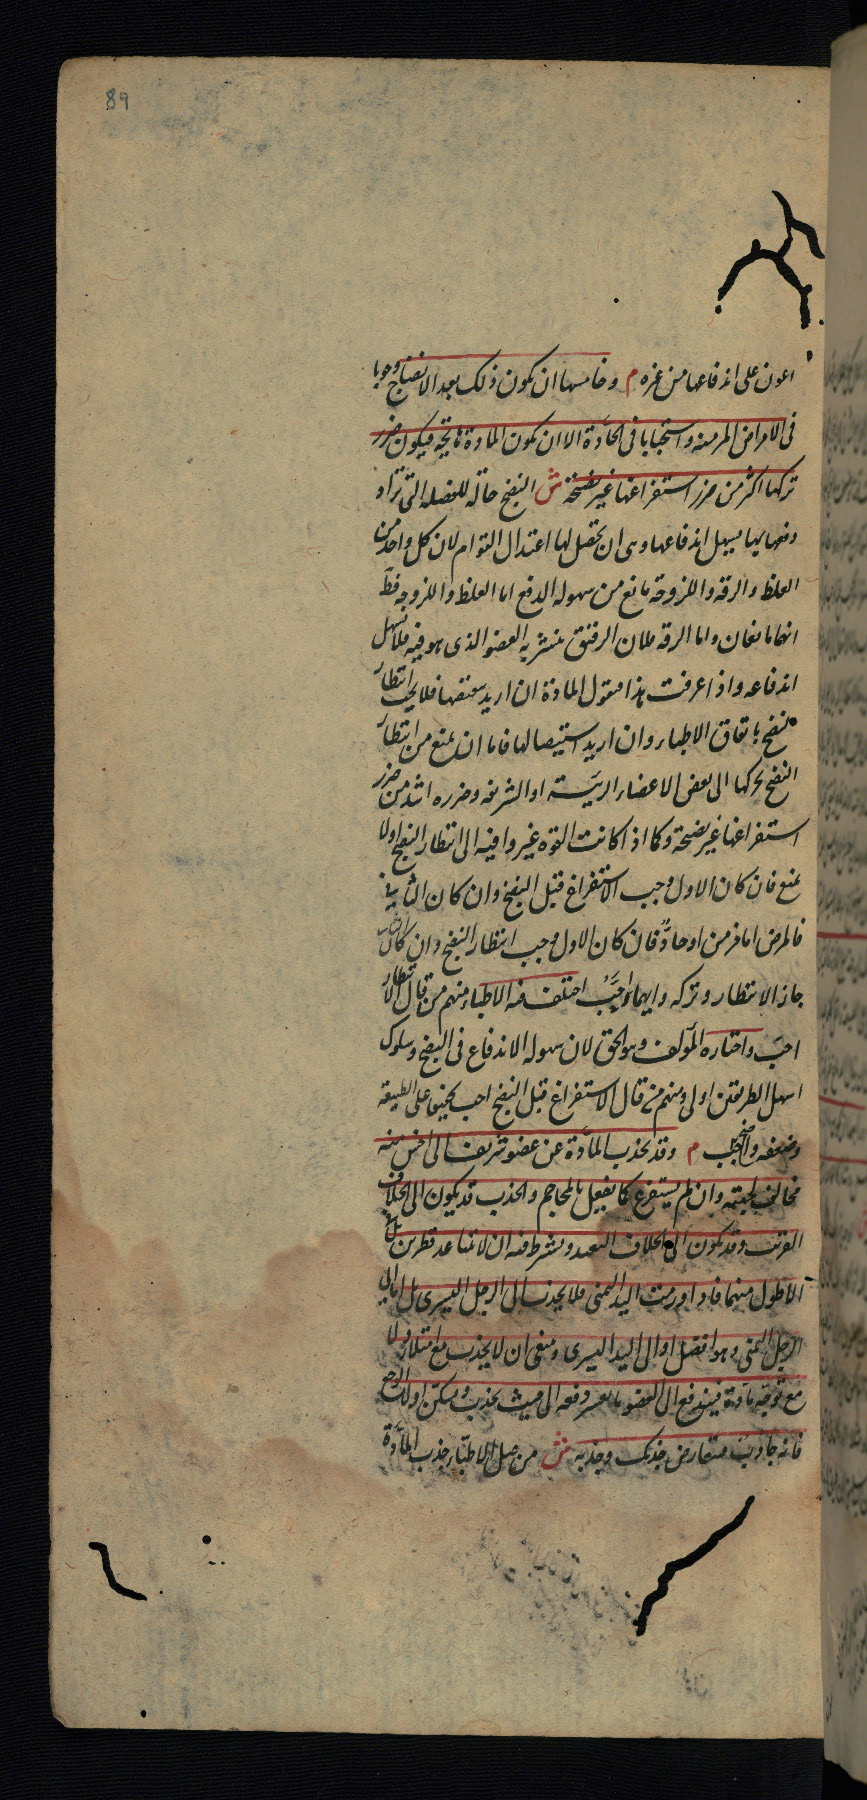 89
اعون على اندفاعها من غيره م وخامسها ان يكون ذلك بعد الانضاج وجوبا
فى الامراض المزمنه واستحبابا فى الحادّة الا ان يكون المادة هايجة فيكون ضرر
تركها اكثر من ضرر استفراغها غير نضجة ش النضج حالة للفضلة التى تراد
دفعها بها يسهل اندفاعها وهى ان يحصل لها اعتدال القوام لان كل واحد من
الغلظ والرقه واللزوجة مانع من سهولة الدفع اما الغلظ واللزوجه
انهما مانعان واما الرقه فلان الرقيق يتشربه العضو الذى هو فيه فلا يسهل
اندفاعه واذا عرفت هذا فنقول المادة ان اريد بعضها فلا يجب انتظار
النضج باتفاق الاطباء وان اريد استيصالها فاما ان يمنع من انتظار
النضج تحركها الى بعض الاعضاء الرئيسة او الشريفه وضرره اشد من ضرر
استفراغها غير نضجة وكما اذا كانت القوه غير وافيه الى انتظار النضج اولا
يمنع فان كان الاول وجب الاستفراغ قبل النضج وان كان الثانى
فالمرض اما مزمن او حادٌّ فان كان الاول وجب انتظار النضج وان كان الثانى
جاز الانتظار وتركه وايهما احَبُّ اختلف فيه الاطباء منهم من قال الانتظار
احبّ واختاره المؤلف وهو الحق لان سهوله الاندفاع فى النضج وسلوك
اسهل الطريقين اولى ومنهم من قال الاستفراغ قبل النضج احب على الطبيعه
م وقد يجذب المادّة عن عضو شريف الى اخس منه
مخالف لجهته وان لم يستفرغ كما يفعل بالمحاجم والجذب قد يكون الى الخلاف
القريب وقد يكون الى الخلاف البعيد ويشرط فيه ان لا يتباعد قطرين
الاطول منهما فاذا اورمت اليد اليمنى فلا يجذب الى الرجل اليسرى بل اما الى
الرجل اليمنى وهو افضل او الى اليد اليسرى وينبغى ان لا يجذب مع امتلاء ولا
مع توجه مادة فيندفع الى العضو ما يعسر دفعه الى حيث يجذب ويسكن اولا الوجع
فانه جاذب فيتعارض جذبك وجذبه ش من حيل الاطبّاء جذب المادّة